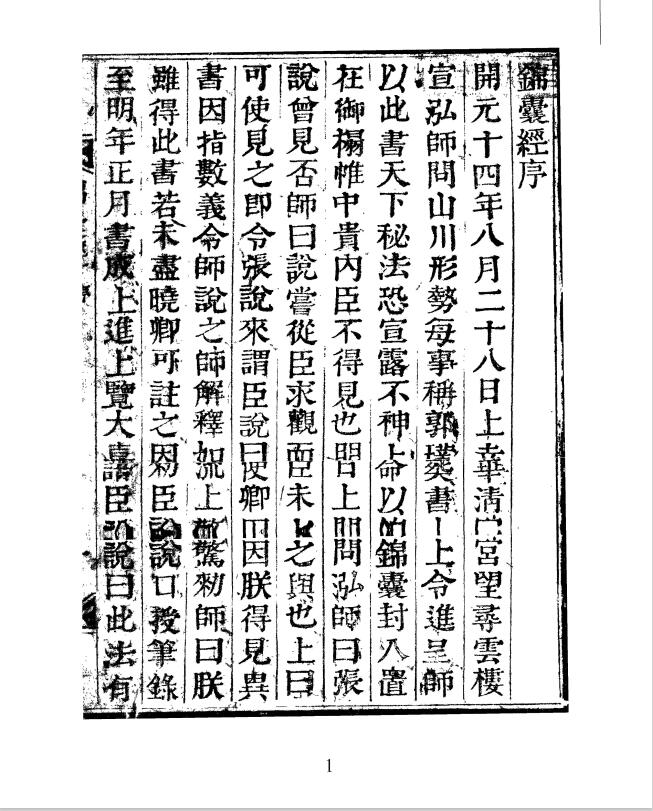 錦囊經序
開元十四年八月二十八日上幸華清宮望尋雲樓
宣泓師問山川形勢每事稱郭璞書上令進呈師
以此書天下秘法恐宣露不神上命以錦囊封入置
在御榻帷中貴內臣不得見也日上問泓師曰張
說曾見否師曰說嘗從臣求觀而臣未之與也上曰
可使見之即令張說來謂臣說曰卿因朕得見異
書因指數義令師說之師解釋如流上驚勑師曰朕
雖得此書若未盡曉卿可註之因勑臣說口授筆錄
至明年正月書成上進上覽大喜臣說曰此法有
1